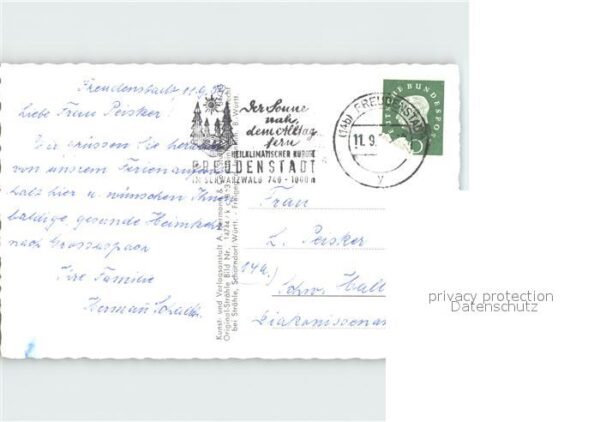 Freudenstadt, 11.9.59
Liebe Frau Peisker!
Wir grüssen Sie herzlich
von unserem Ferienaufent-
halt hier u. wünschen Ihnen
baldige gesunde Heimkehr
nach Grossaspach
Ihre Familie
Hermann
Kunst- und Verlagsanstalt A.
Original-Strähle Bild Nr. 14744
bei Strähle, Schorndorf Württ.
Der Sonne
nah,
dem Alltag
fern
HEILKLIMATISCHER KURORT
FREUDENSTADT
IM SCHWARZWALD 740 - 1000 m
(14b) FREUDENSTADT
11.9.
y
DEUTSCHE BUNDESPOST
Frau
L. Peisker
(14a)
Schw. Hall
Diakonissenan
privacy protection
Datenschutz